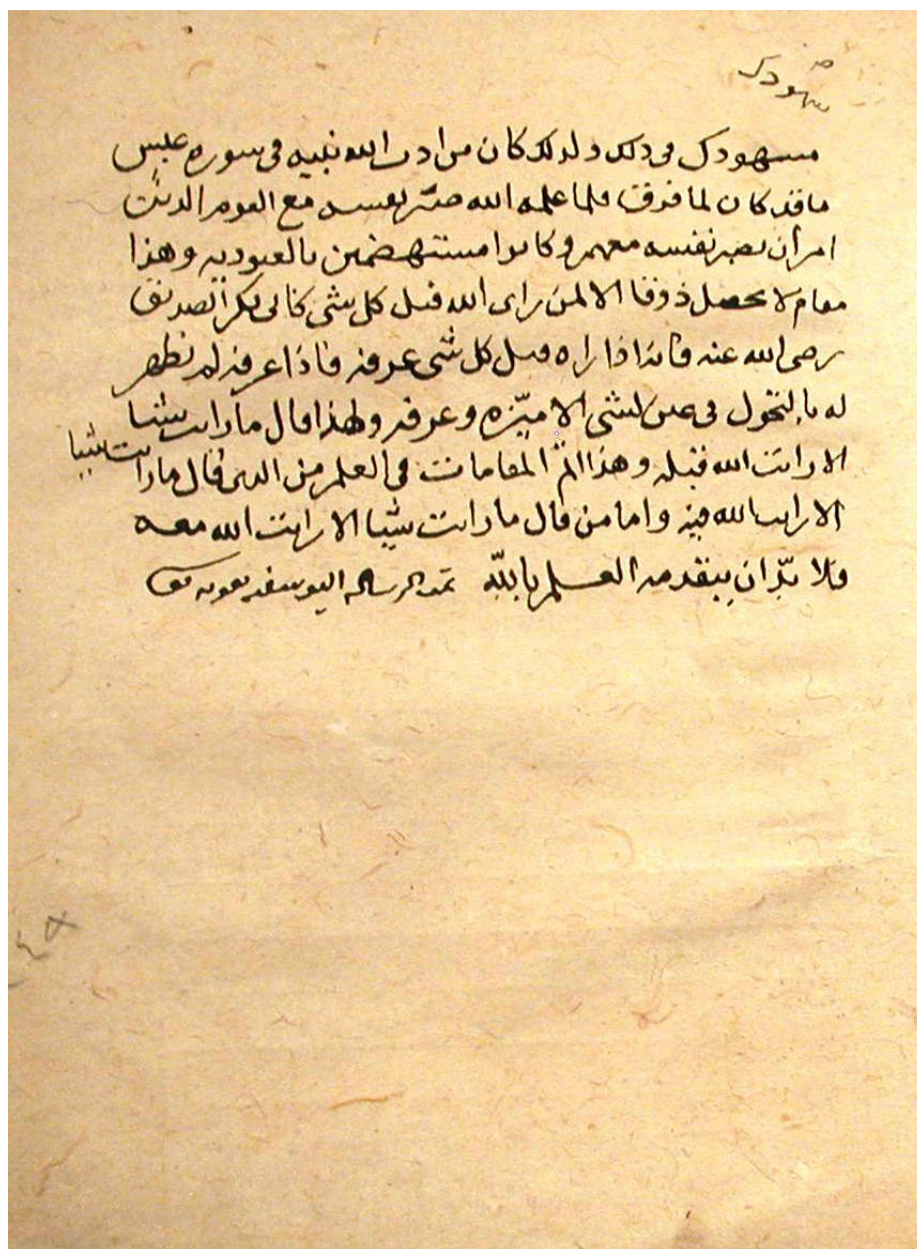 شهودك
مشهودك في ذلك ولذلك كان من ادب الله نبيه في سوره عبس
ما قد كان لما فرق فلما علمه الله صبر نفسه مع القوم الذين
امر أن يصبر نفسه معهم وكانوا مستهضمين بالعبوديه وهذا
مقام لا يحصل ذوقا الا لمن راى الله قبل كل شى كابى بكر الصديق
رضى الله عنه فانه اذا راه قبل كل شى عرفه فاذا عرفه لم يظهر
له بالتحول فى عين الشى الا ميّزه وعرفه ولهذا قال ما رايت شيا
الا رايت الله قبله وهذا اتم المقامات فى العلم من الذى قال ما رايت شيا
الا رايت الله فيه واما من قال ما رايت شيا الا رايت الله معه
فلا بدّ ان يتقدمه العلم بالله تمت الرساله اليوسفيه